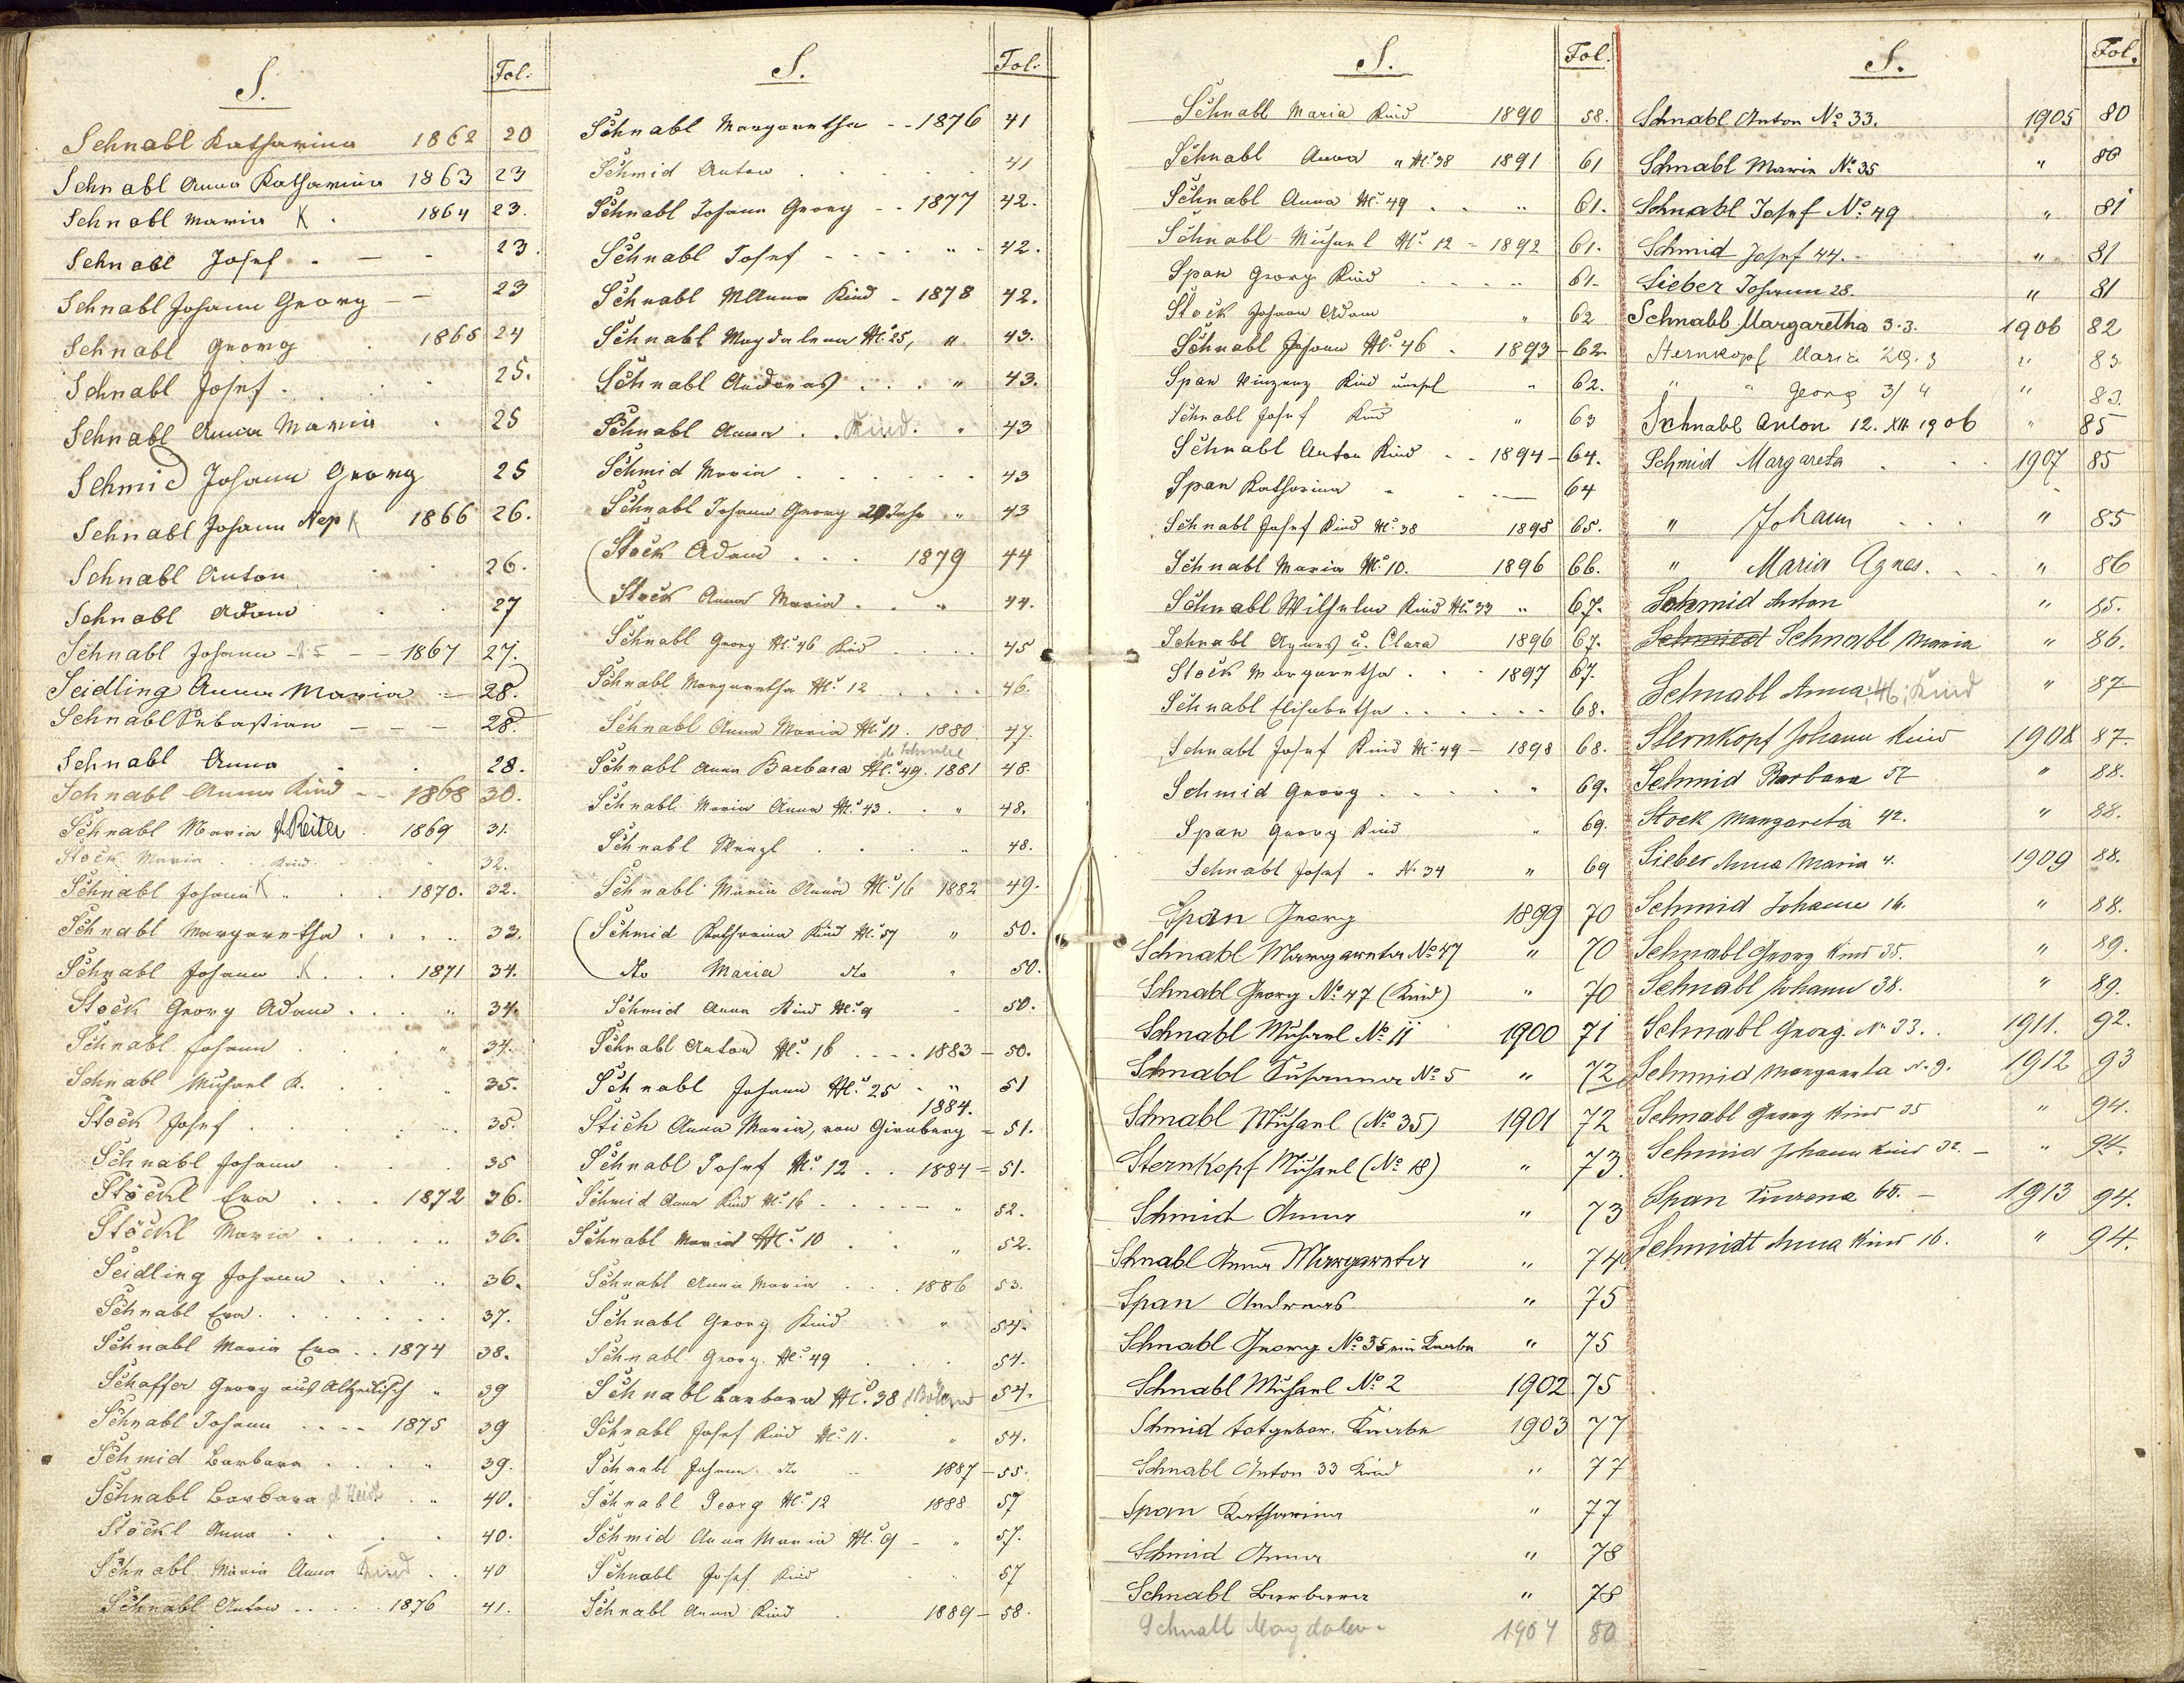 S. Fol.
Schnabl Katharina 1862 20
Schnabl Anna Katharina 1863 23
Schnabl Maria K . 1864 23.
Schnabl Josef . — - 23.
Schnabl Johann Georg - — 23
Schnabl Georg . 1865 24
Schnabl Josef . . . 25.
Schnabl Anna Maria . 25
Schmid Johann Georg 25
Schnabl Johann Nep K 1866 26.
Schnabl Anton . . 26.
Schnabl Adam . . 27
Schnabl Johann — 1867 27.
Seidling Anna Maria — 28.
Schnabl Sebastian — — — 28.
Schnabl Anna . . 28.
Schnabl Anna Kind - - 1868 30.
Schnabl Maria Reiter . 1869 31.
Stock Maria . . Kind. - " 32.
Schnabl Johann K " . . 1870. 32.
Schnabl Margaretha . . . " 33.
Schnabl Johann K . . . 1871 34.
Stock Georg Adam . . . " 34.
Schnabl Johann . . . " 34.
Schnabl Michael K. . . " 35.
Stock Josef . . . . " 35.
Schnabl Johann . . . 35
Stöckl Eva . . . 1872 36.
Stöckl Maria . . . . " 36.
Seidling Johann . . . " 36.
Schnabl Eva . . . . . . 37.
Schnabl Maria Eva . . 1874 38.
Schaffer Georg aus Altzedlisch " 39
Schnabl Johann . . . . 1875 39
Schmid Barbara . . . " 39.
Schnabl Barbara . . " 40.
Stöckl Anna . . . . . 40.
Schnabl Maria Anna Kind . . 40
Schnabl Anton . . . . 1876 41.
S. Fol.
Schnabl Margaretha - - 1876 41
Schmid Anton . . . . . 41
Schnabl Johann Georg - - 1877 42.
Schnabl Josef - - - - " - 42.
Schnabl MAnna Kind - 1878 42.
Schnabl Magdalena № 25, " 43.
Schnabl Andreas . . . " 43.
Schnabl Anna . . Kind. " 43
Schmid Maria . . . . . . 43
Schnabl Johann Georg 29 Jahr " 43
(Stock Adam . . . 1879 44
Stock Anna Maria . . " 44.
Schnabl Georg № 46 Kind . . . . 45
Schnabl Margaretha № 12 . . . . 46.
Schnabl Anna Maria № 11. 1880 47.
Schnabl Anna Barbara № 49. 1881 48.
Schnabl Maria Anna № 43 . . " 48.
Schnabl Wenzl . . . . " 48.
Schnabl Maria Anna № 16 1882 49.
(Schmid Katharina Kind № 57 " 50.
dto Maria dto " 50.
Schmid Anna Kind № 9 - 50.
Schnabl Anton № 16 . . . . 1883 - 50.
Schnabl Johann № 25 . " 51
1884.
Stich Anna Maria, von Girnberg = 51.
Schnabl Josef № 12 . . 1884 = 51.
Schmid Anna Kind № 16 . . . . — " 52.
Schnabl Maria № 10 . . " 52.
Schnabl Anna Maria . . . 1886 53.
Schnabl Georg Kind " 54.
Schnabl Georg. № 49 . . . . 54.
Schnabl Barbara № 38 54.
Schnabl Josef Kind № 11. " 54.
Schnabl Johann dto .. 1887 - 55.
Schnabl Georg № 12 1888 57
Schmid Anna Maria № 9 - " 57.
Schnabl Josef Kind . . 57
Schnabl Anna Kind . 1889 - 58.
S. Fol.
Schnabl Maria Kind 1890 58.
Schnabl Anna " № 38 1891 61
Schnabl Anna № 49 . . " 61.
Schnabl Michael № 12 - 1892 61.
Span Georg Kind . . . . " 61-
Stock Johann Adam " 62
Schnabl Johann № 46 . 1893 - 62.
Span Vinzenz Kind " 62.
Schnabl Josef Kind " 63
Schnabl Anton Kind - - 1894 - 64.
Span Katharina - . . — 64
Schnabl Josef Kind № 38 1895 65.
Schnabl Maria № 10. 1896 66.
Schnabl Wilhelm Kind № 33 " 67.
Schnabl Agnes u. Clara 1896 67.
Stock Margaretha . . . 1897 67.
Schnabl Elisabetha . . . . . . 68.
Schnabl Josef Kind № 49 - 1898 68.
Schmid Georg . . . . . " 69.
Span Georg Kind " 69.
Schnabl Josef " № 34 " 69
Span Georg 1899 70
Schnabl Margareta № 47 " 70
Schnabl Georg № 47 (Kind) " 70
Schnabl Michael № 11 1900 71
Schnabl Susanna № 5 " 72
Schnabl Michael (№ 35) 1901 72
Sternkopf Michael (№ 18) " 73.
Schmid Anna " 73
Schnabl Anna Margareta " 74
Span Andreas " 75
Schnabl Georg № 35 ein Knabe " 75
Schnabl Michael № 2 1902 75
Schmid totgebor. Knabe 1903 77
Schnabl Anton 33 Kind " 77
Span Katharina " 77
Schmid Anna " 78
Schnabl Barbara " 78
Schnabl Magdalena 1904 80
S. Fol.
Schnabl Anton № 33. 1905 80
Schnabl Maria № 35 " 80
Schnabl Josef № 49 " 81
Schmid Josef 44. " 81
Sieber Johann 28. " 81
Schnabl Margaretha 3.3. 1906 82
Sternkopf Maria 29.3 " 83
" " Georg 3/4 " 83.
Schnabl Anton 12. XII. 1906 " 85
Schmid Margareta . . . 1907 85
" Johann . . . " 85
" Maria Agnes. . . " 86
Schmid Anton " 85.
Schmied Schnabl Maria " 86.
Schnabl Anna, 46, Kind " 87
Sternkopf Johann Kind 1908 87.
Schmid Barbara 57 " 88.
Stock Margareta 42. " 88.
Sieber Anna Maria 4. 1909 88.
Schmid Johann 16. " 88.
Schnabl Georg Kind 35. " 89.
Schnabl Johann 38. " 89.
Schnabl Georg. № 33. . 1911. 92.
Schmid Margareta № 9. 1912 93
Schnabl Georg Kind 35 " 94.
Schmid Johann Kind 32. - " 94.
Span 65. - 1913 94.
Schmidt Anna Kind 16. " 94.